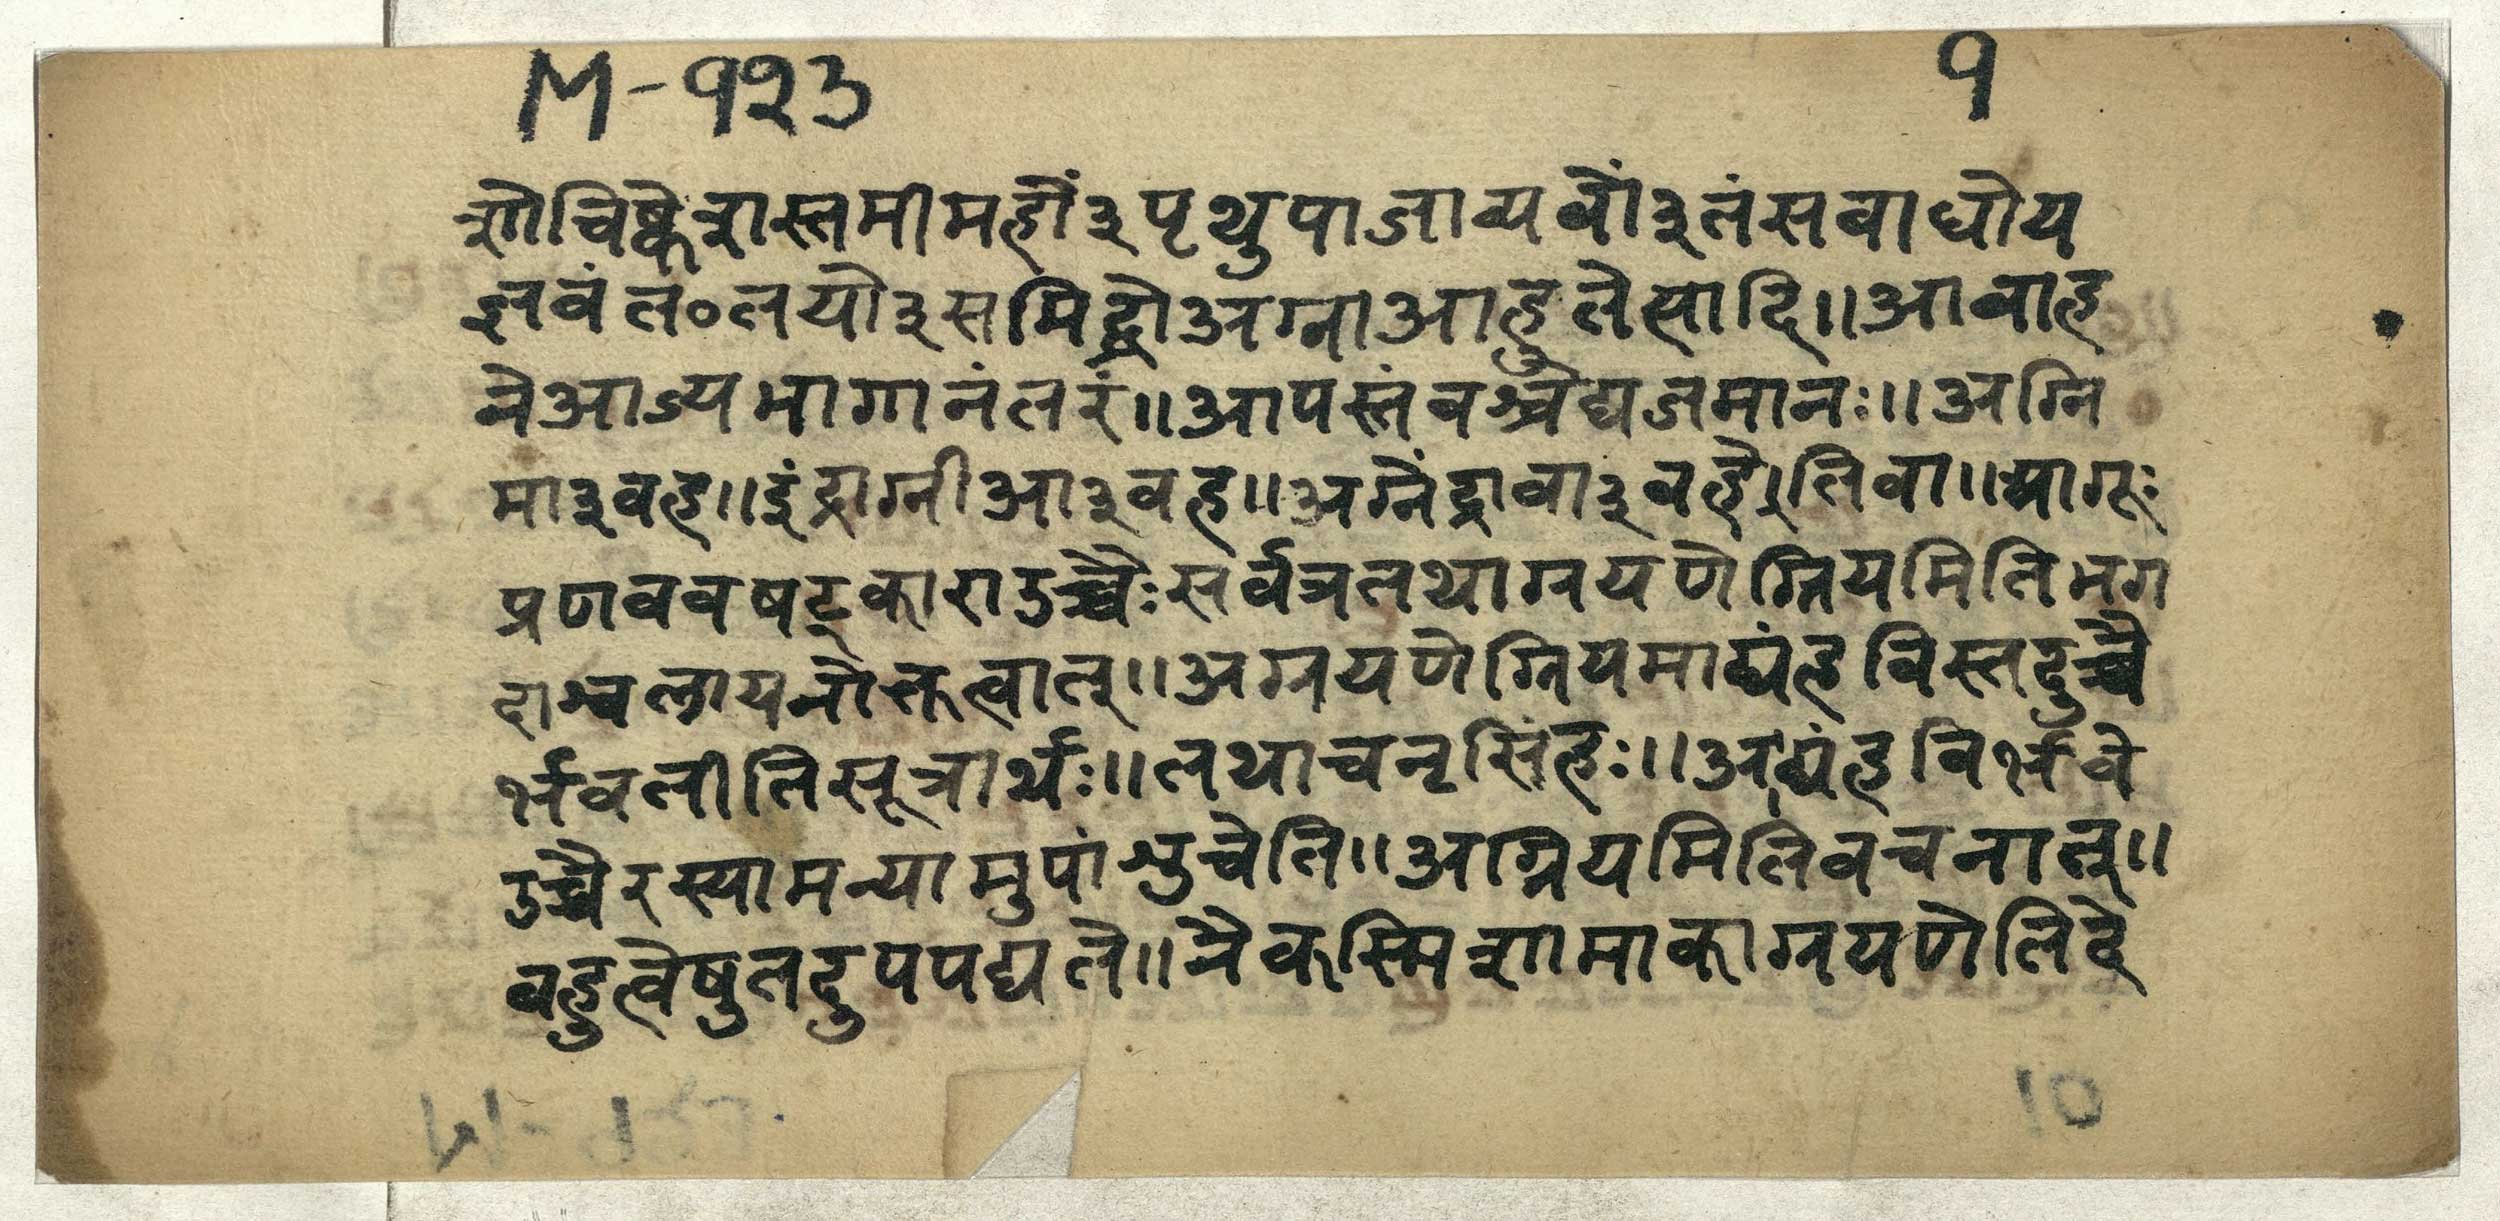 M-१२३
१
शोचिष्केशस्तमीमहों३पृथुपाजाव्यवों३तंसबाधोय
ज्ञवंत०तयो३समिद्धोअग्नाआहुतेत्यादि॥आवाह
नेआज्यभागानंतरं॥आपस्तंबश्चेद्यजमानः॥अग्नि
मा३वह॥इंद्राग्नीआ३वह॥अग्नेंद्रावा३वहे।तिवा॥प्रागूः
प्रणववषट्काराउच्चैःसर्वत्रतथाग्रयणेग्नियमितिभग
दाश्वलायनोक्तत्वात्॥अग्रयणेग्नियमाद्यंहविस्तदुच्चै
र्भवतीतिसूत्रार्थः॥तथाचनृसिंहः॥आद्यंहविर्भवे
उच्चैरस्यामन्यामुपांशुचेति॥अग्नियमितिवचनात्॥
बहुत्वेषुतदुपपद्यते॥नैकस्मिशामाकाग्रयणेतिदे